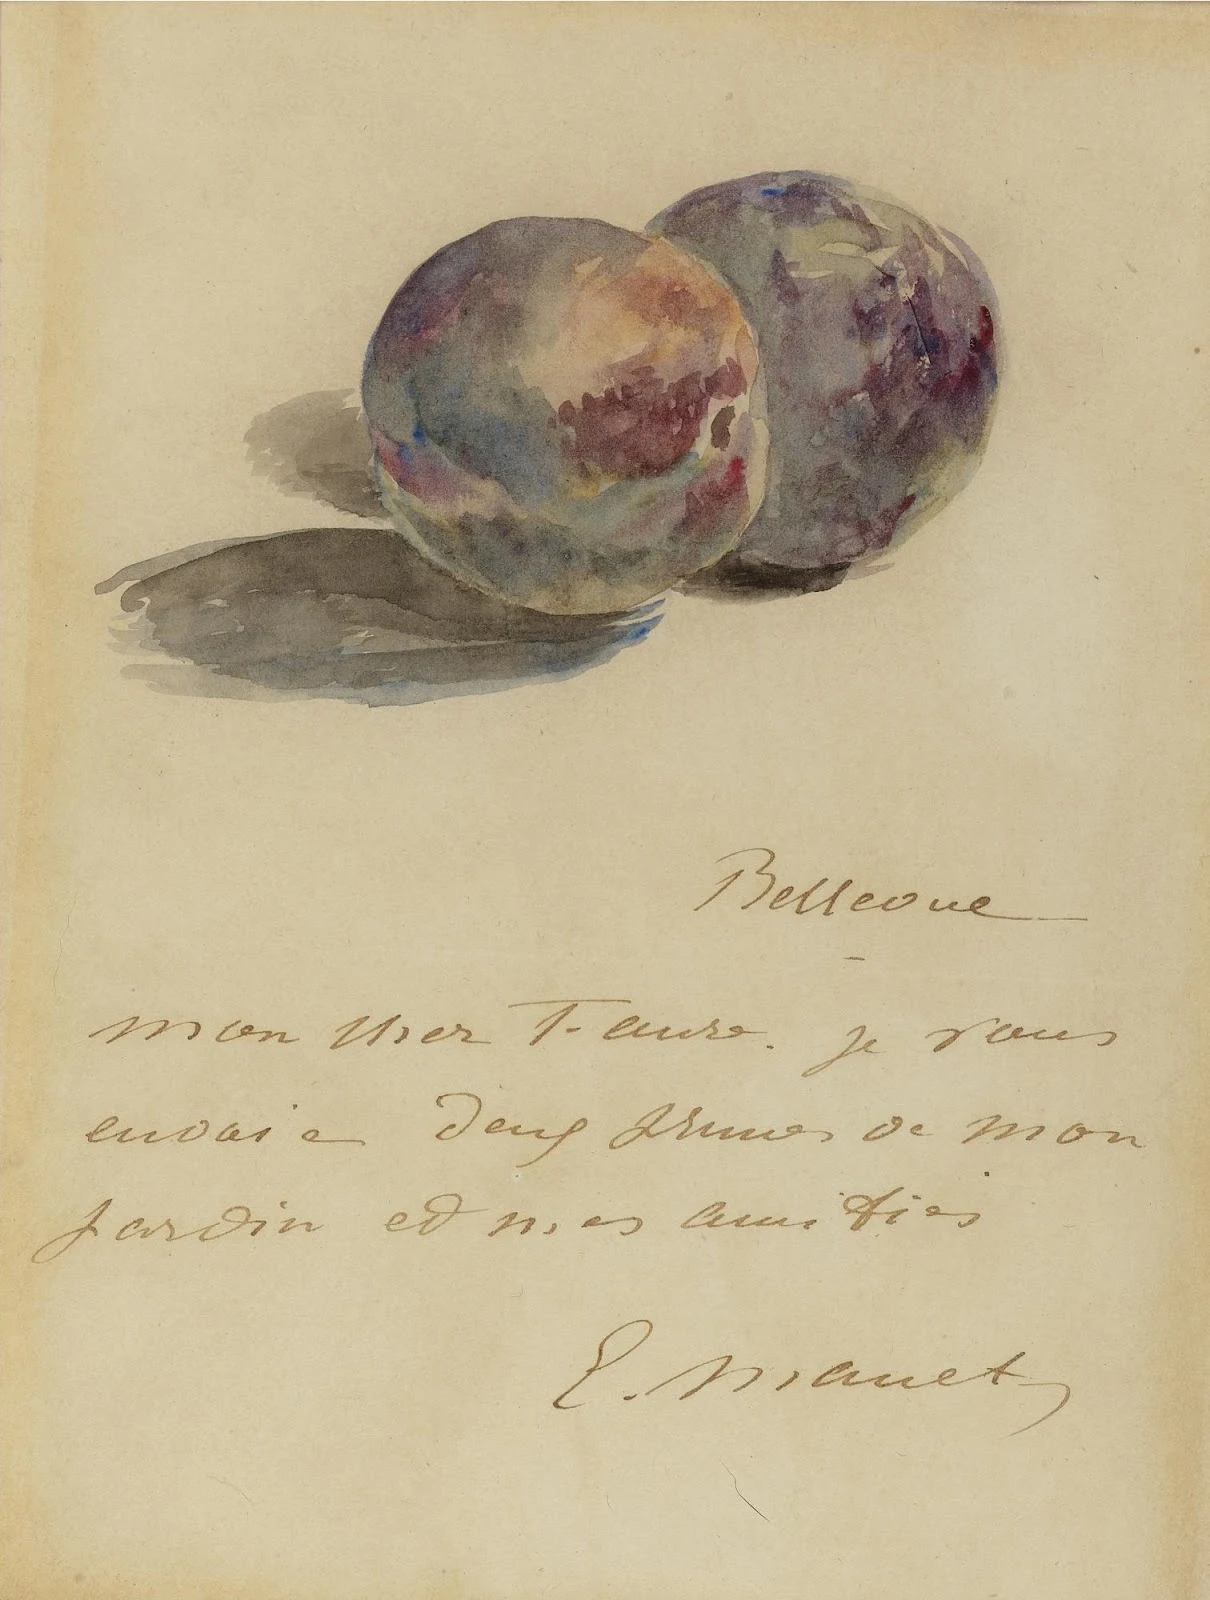 Bellevue
mon cher Faure. je vous
envoie deux prunes de mon
jardin et mes amitiés
E. Manet